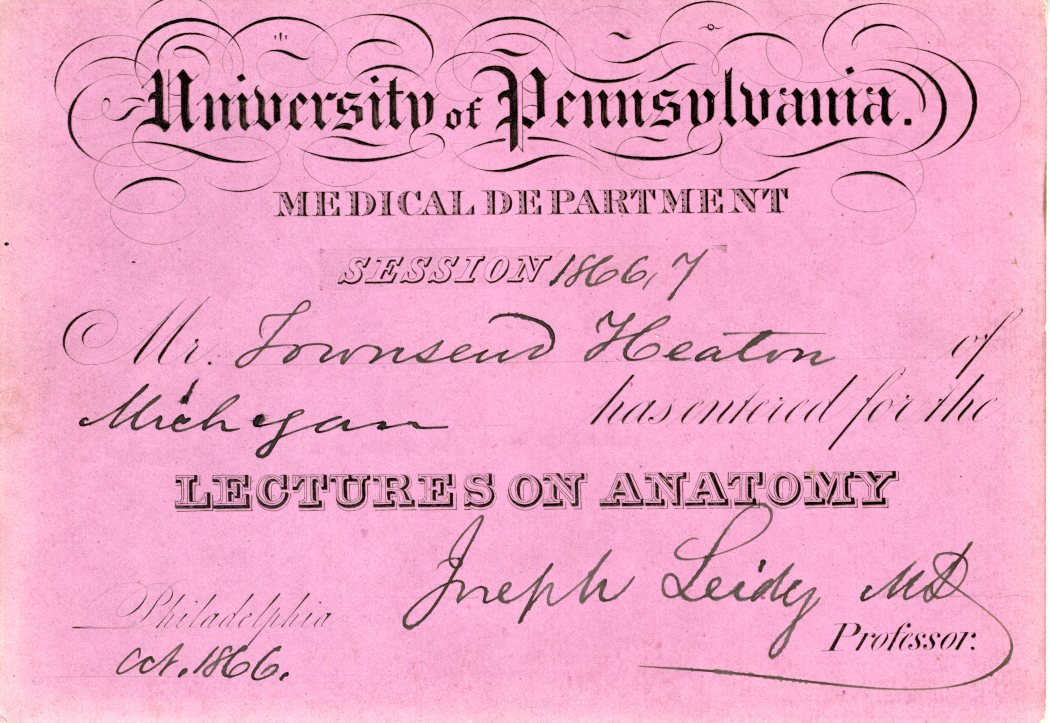 University of Pennsylvania.
MEDICAL DEPARTMENT
SESSION 1866,7
Mr. Townsend Heaton of
Michegan has entered for the
LECTURES ON ANATOMY
Joseph Leidy MD
Professor.
Philadelphia
Oct. 1866.